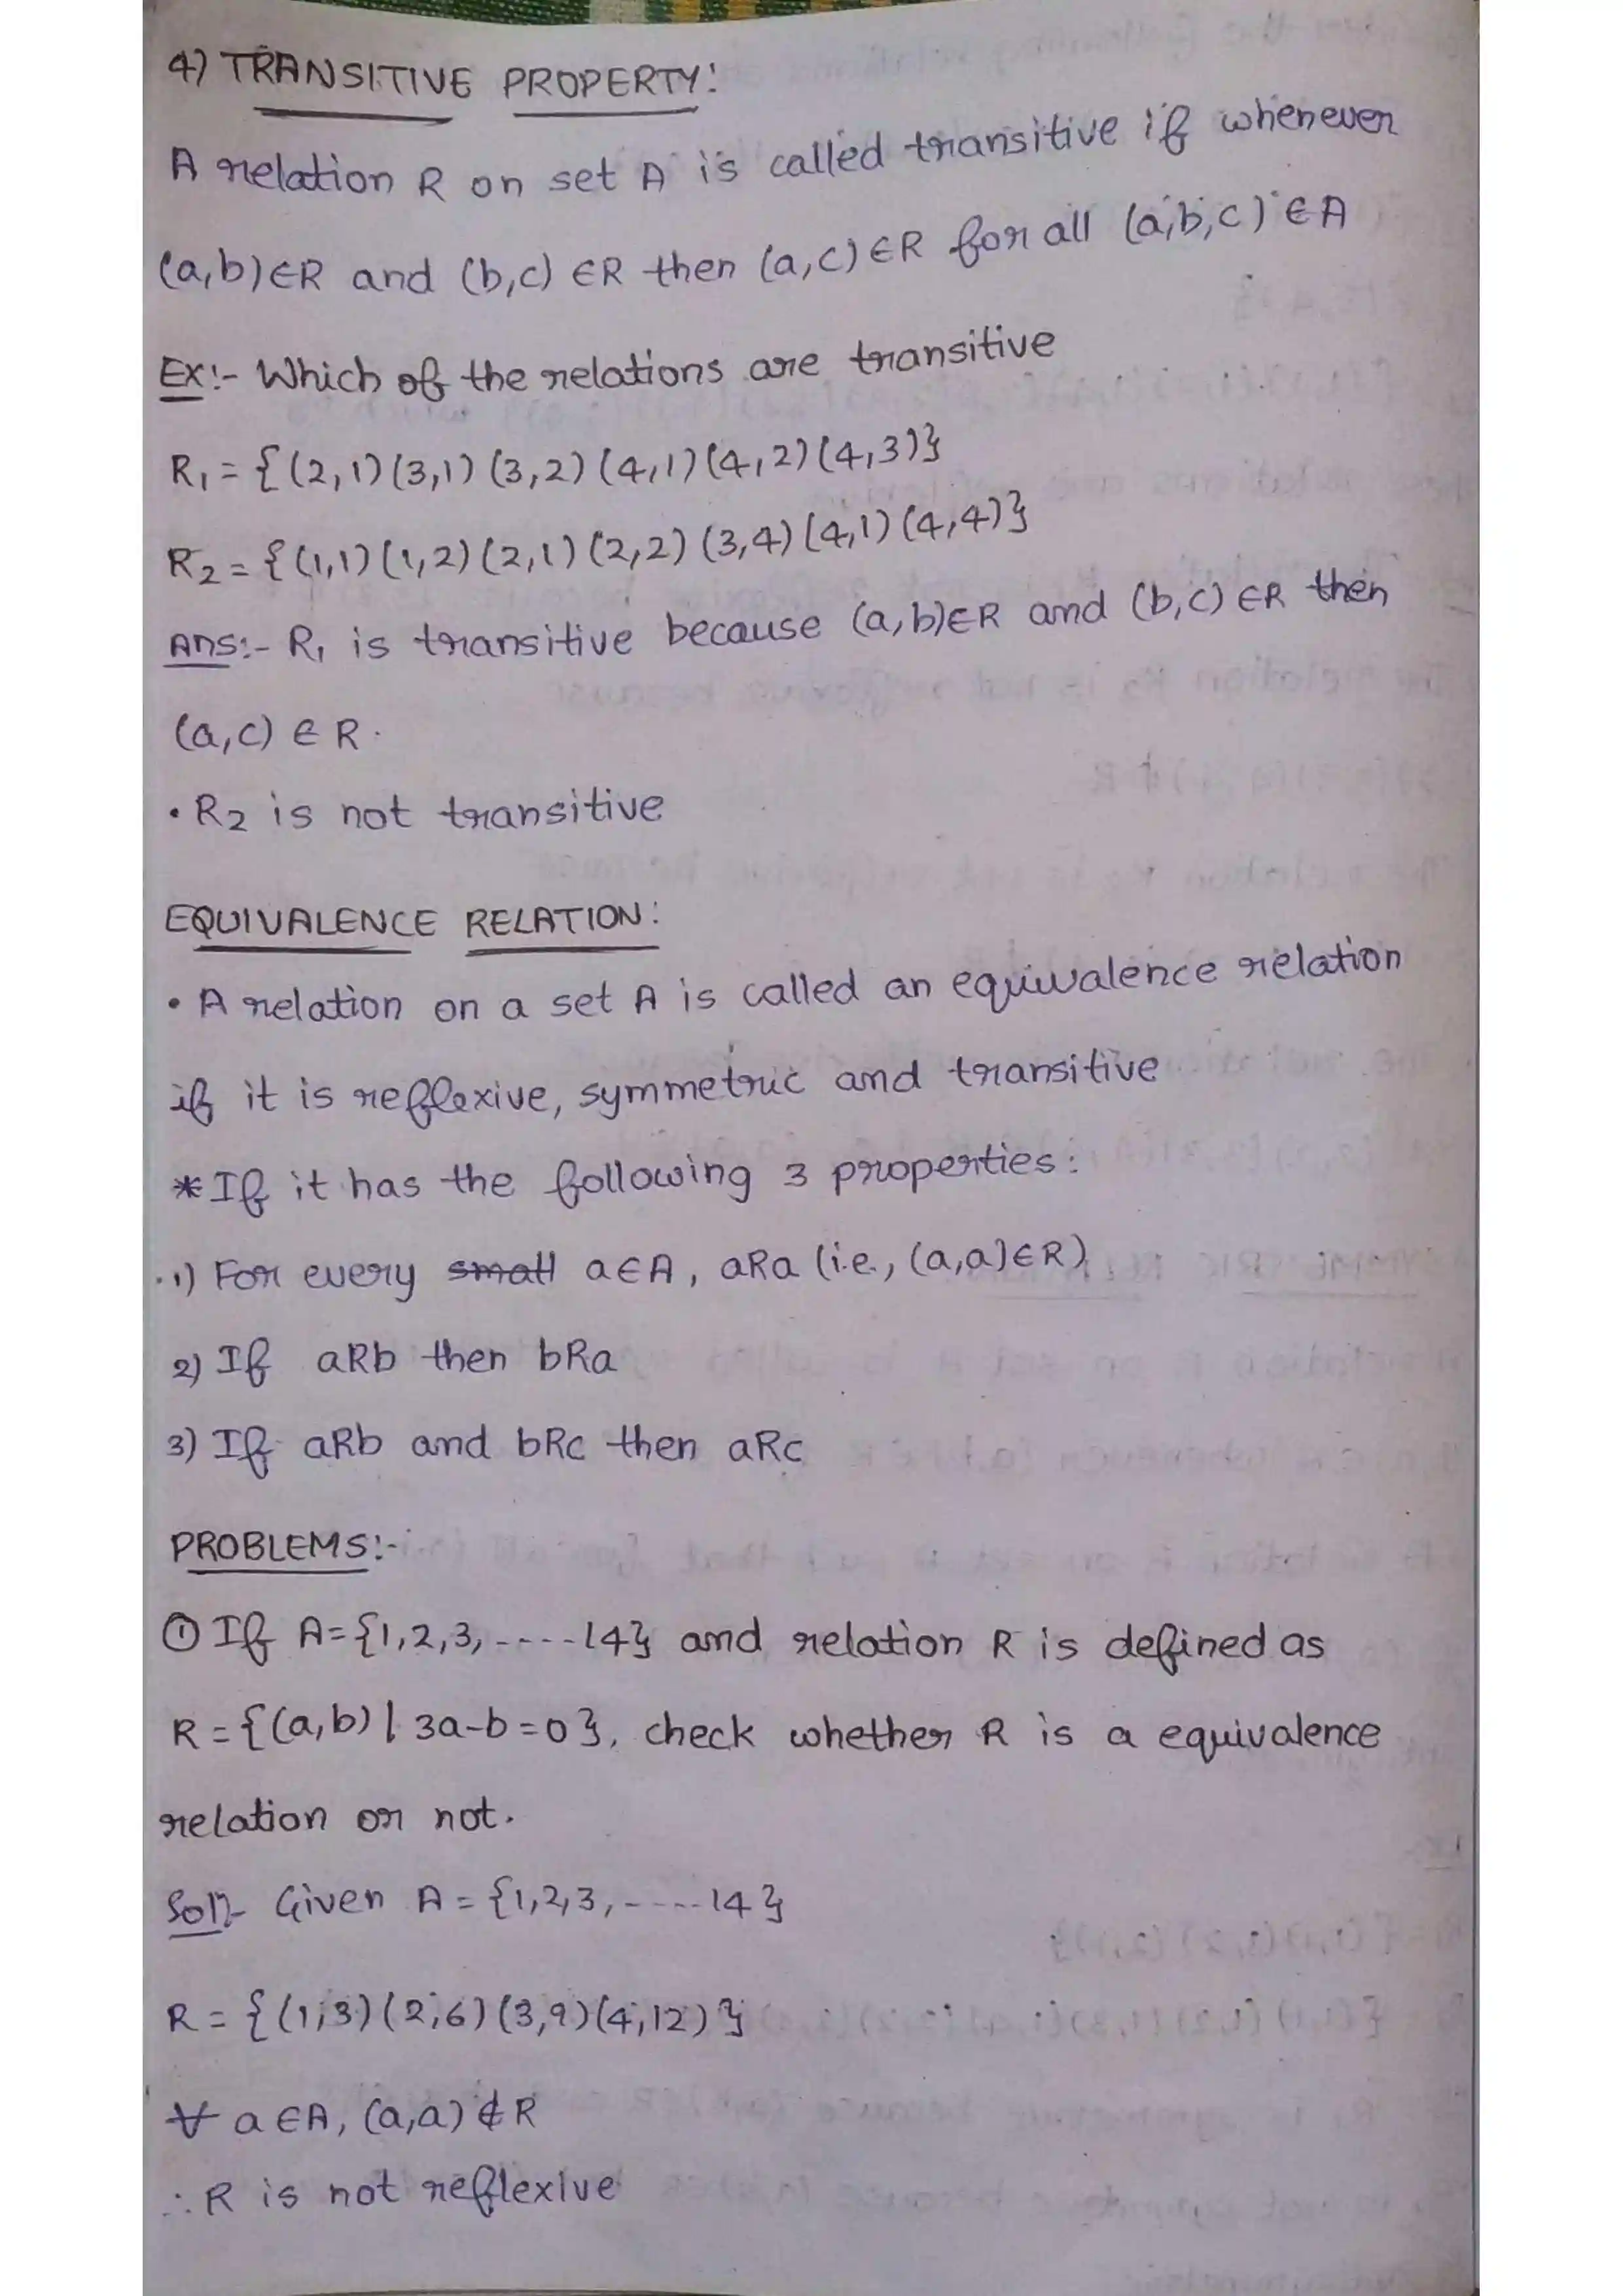 4) TRANSITIVE PROPERTY:
A relation R on set A is called transitive if whenever
(a,b)∈R and (b,c) ∈R then (a,c)∈R for all (a,b,c)∈A
Ex:- Which of the relations are transitive
R₁ = {(2,1)(3,1)(3,2)(4,1)(4,2)(4,3)}
R₂ = {(1,1)(1,2)(2,1)(2,2)(3,4)(4,1)(4,4)}
Ans:- R₁ is transitive because (a,b)∈R and (b,c)∈R then
(a,c) ∈ R.
• R₂ is not transitive
EQUIVALENCE RELATION:
• A relation on a set A is called an equivalence relation
if it is reflexive, symmetric and transitive
* If it has the following 3 properties:
1) For every small a∈A, aRa (i.e., (a,a)∈R)
2) If aRb then bRa
3) If aRb and bRc then aRc
PROBLEMS:-
① If A={1,2,3,-----14} and relation R is defined as
R = {(a,b) | 3a-b=0}, check whether R is a equivalence
relation or not.
Soln:- Given A = {1,2,3,-----14}
R = {(1,3)(2,6)(3,9)(4,12)}
∀ a∈A, (a,a)∉R
∴ R is not reflexive